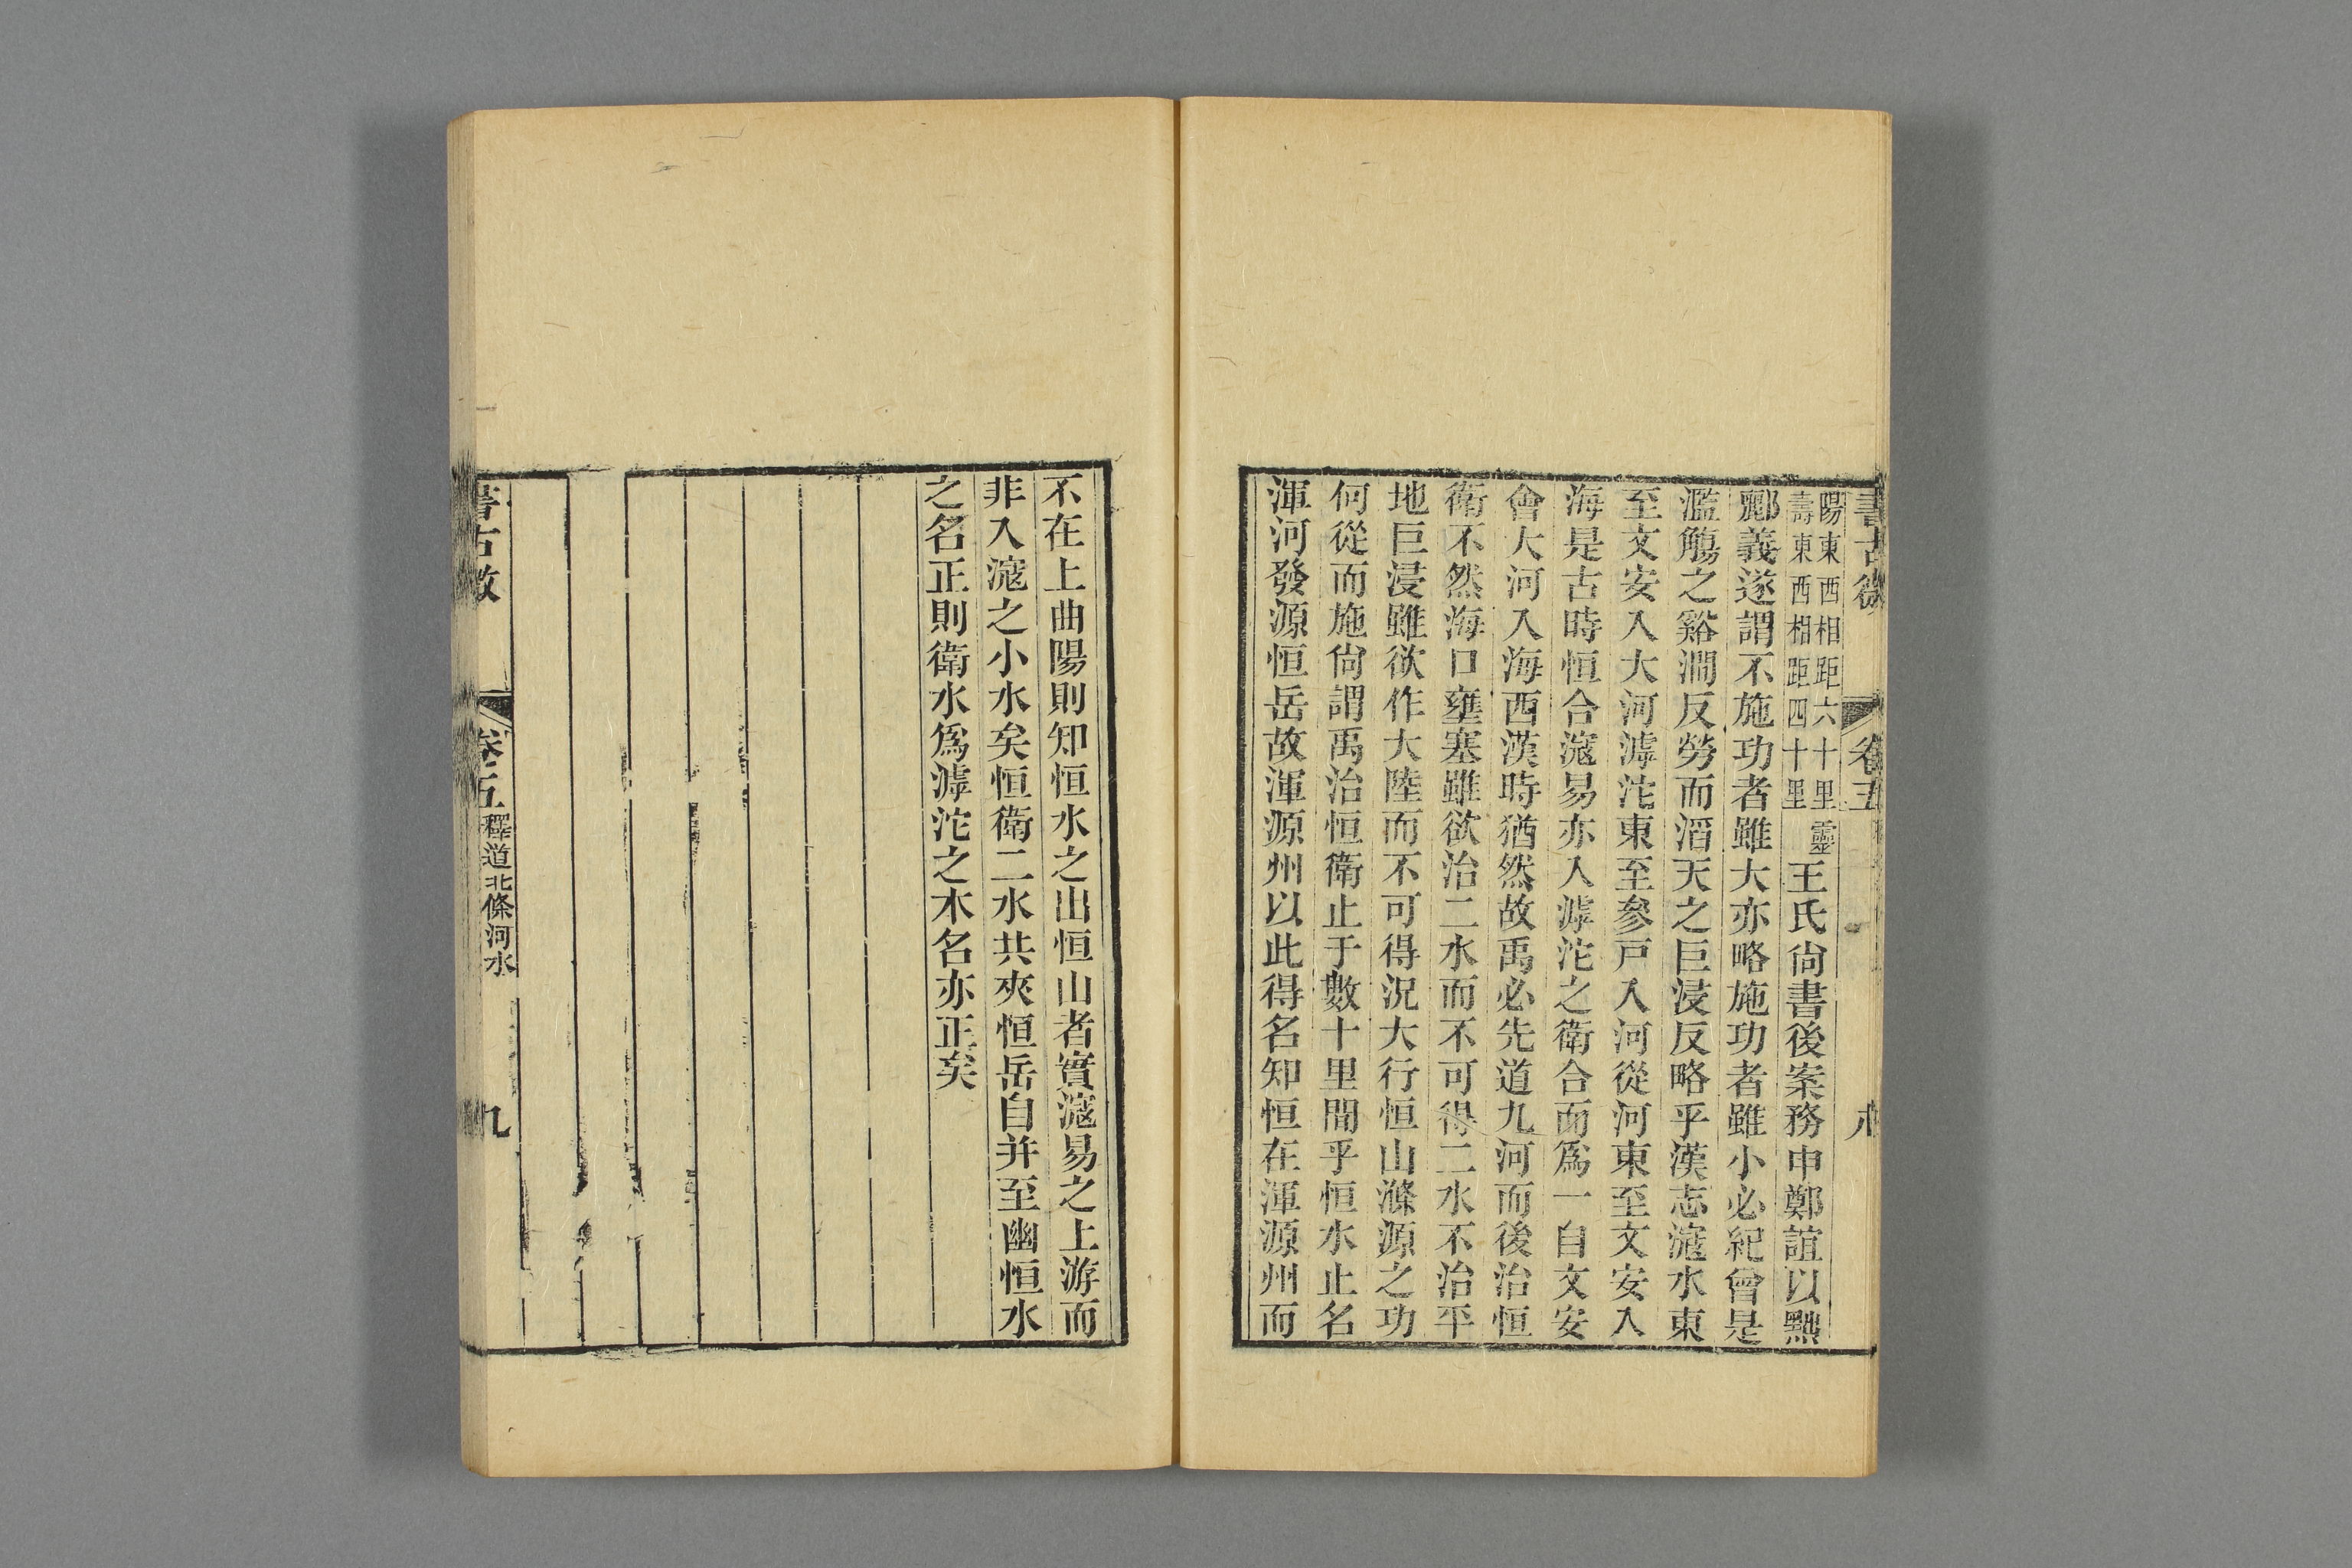 書古微
卷五
八
陽東西相距六十里靈
壽東西相距四十里
王氏尙書後案務申鄭誼以黜
酈義遂謂不施功者雖大亦略施功者雖小必紀曾是
濫觴之谿澗反勞而滔天之巨浸反略乎漢志滱水東
至文安入大河滹沱東至參戸入河從河東至文安入
海是古時恒合滱易亦入滹沱之衛合而爲一自文安
會大河入海西漢時猶然故禹必先道九河而後治恒
衛不然海口壅塞雖欲治二水而不可得二水不治平
地巨浸雖欲作大陸而不可得況大行恒山滌源之功
何從而施尙謂禹治恒衛止于數十里閒乎恒水止名
渾河發源恒岳故渾源州以此得名知恒在渾源州而
不在上曲陽則知恒水之出恒山者實滱易之上游而
非入滱之小水矣恒衛二水共夾恒岳自并至幽恒水
之名正則衛水爲滹沱之本名亦正矣
書古微
卷五
釋道北條河水
九